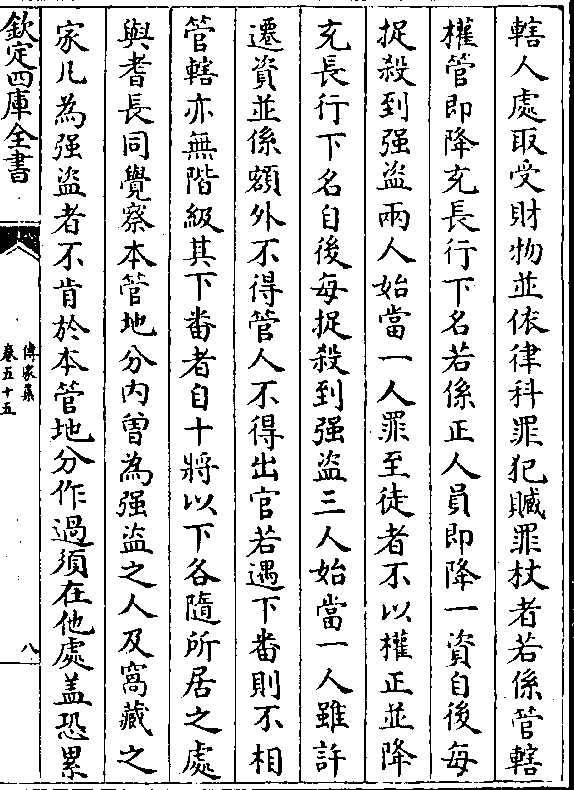 轄人處取受財物並依律科罪犯贓罪杖者若係管轄
權管即降充長行下名若係正人員即降一資自後每
捉殺到强盜兩人始當一人罪至徒者不以權正並降
充長行下名自後每捉殺到强盜三人始當一人雖許
遷資並係額外不得管人不得出官若遇下番則不相
管轄亦無階級其下番者自十將以下各隨所居之處
與耆長同覺察本管地分内曾為强盜之人及窩藏之
家凡為强盜者不肯於本管地分作過須在他處盖恐累
欽定四庫全書
傳家集
卷五十五
八